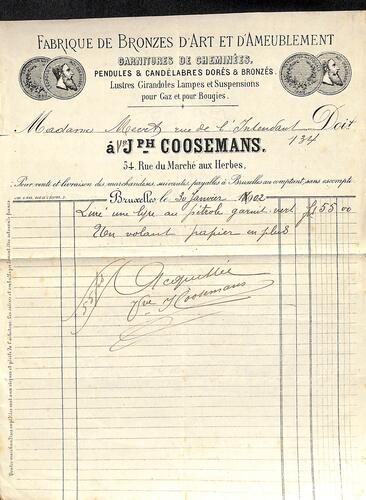 FABRIQUE DE BRONZES D'ART ET D'AMEUBLEMENT
GARNITURES DE CHEMINÉES,
PENDULES & CANDÉLABRES DORÉS & BRONZÉS.
Lustres Girandoles Lampes et Suspensions
pour Gaz et pour Bougies.
Madame rue de l'Intendant Doit
134
à Vve JPH COOSEMANS.
54, Rue du Marché aux Herbes,
Pour vente et livraison des marchandises suivantes payables à Bruxelles au comptant, sans escompte
Bruxelles le 30 Janvier 1902
Livré une lyre au pétrole garnit. vert fr 55 00
Un volant papier en plus
Acquittée
Vve J Coosemans